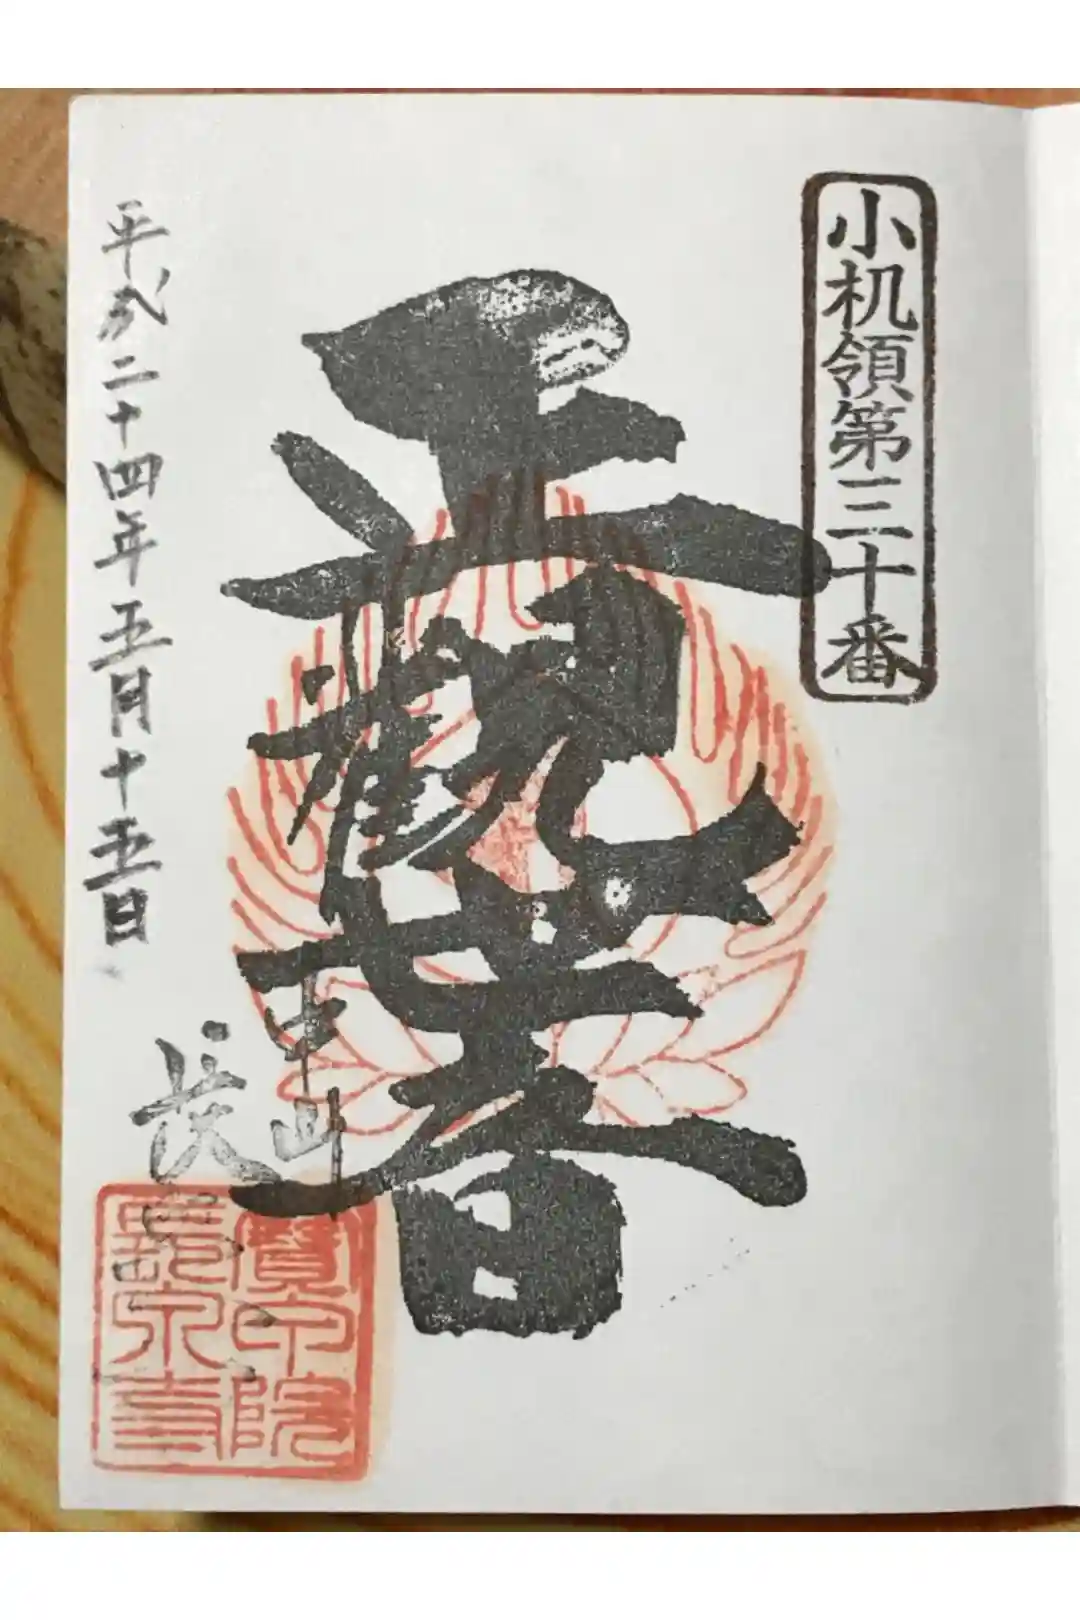 小机領第三十番
正観世音
平成二十四年五月十五日
中山
長